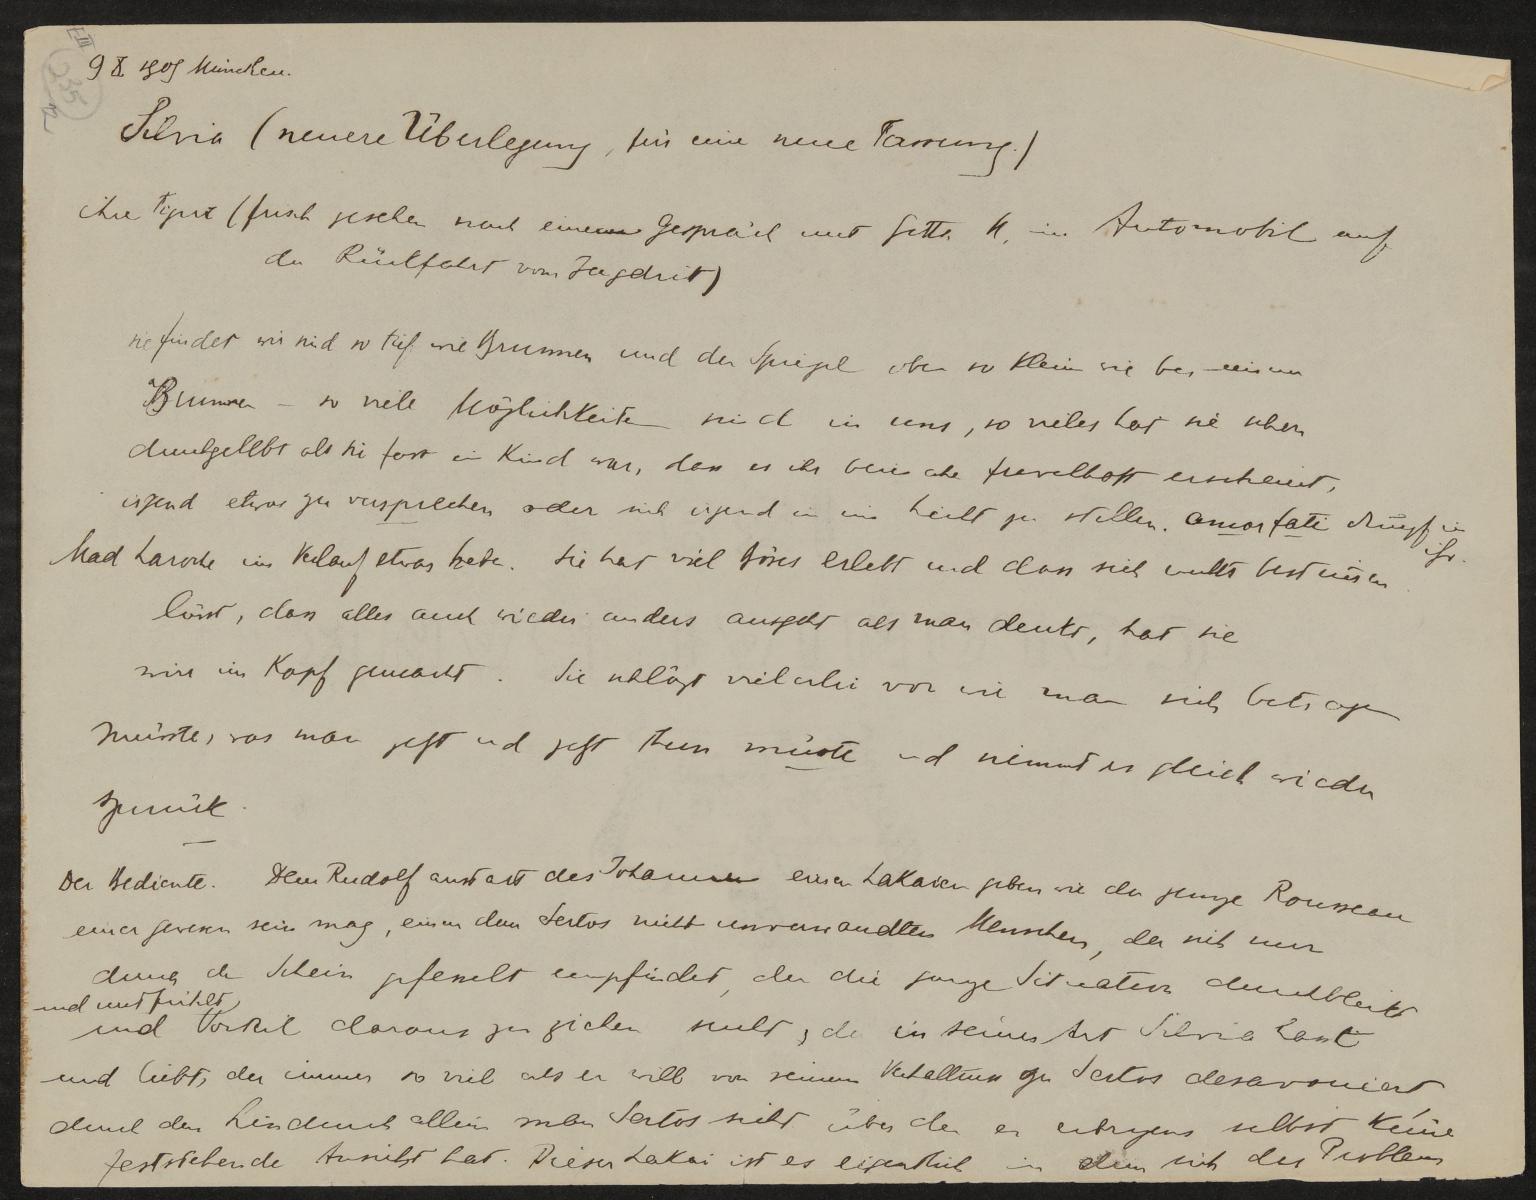 E III
235
12
9 X 1909 München.
Silvia (neuere Überlegung, für eine neue Fassung.)
ihre Figur (frisch gesehen nach einem Gespräch mit Gretl H. im Automobil auf
der Rückfahrt vom Jagdritt)
sie findet wir sind so tief wie Brunnen und der Spiegel oben so klein wie bei einem
Brunnen – so viele Möglichkeiten sind in uns, so vieles hat sie schon
durchgelebt als sie fast ein Kind war, dass es ihr beinahe frevelhaft erscheint,
irgend etwas zu versprechen oder sich irgend in ein Licht zu stellen. amor fati dumpf in
ihr.
Mad Laroche im Verlauf etwas heben. Sie hat viel böses erlebt und dass sich nichts bestimmen
lässt, dass alles auch wieder anders ausgeht als man denkt, hat sie
wirr im Kopf gemacht. Sie schlägt vielerlei vor wie man sich betragen
müsste, was man jetzt und jetzt thun müsste und nimmt es gleich wieder
zurück.
Der Bediente. Dem Rudolf anstatt des Johann einen Lakaien geben wie der junge Rousseau
einer gewesen sein mag, einen dem Sertos nicht unverwandten Menschen, der sich nur
durch den Schein gefesselt empfindet, der die ganze Situation durchblickt
und mitfühlt
und Vorteil daraus zu ziehen sucht, der in seiner Art Silvia hasst
und liebt, der immer so viel als er will von seinem Verhältniss zu Sertos desavouiert
durch den hindurch allein man Sertos sieht über den er übrigens selbst keine
feststehende Ansicht hat. Dieser Lakai ist es eigentlich in dem sich das Problem